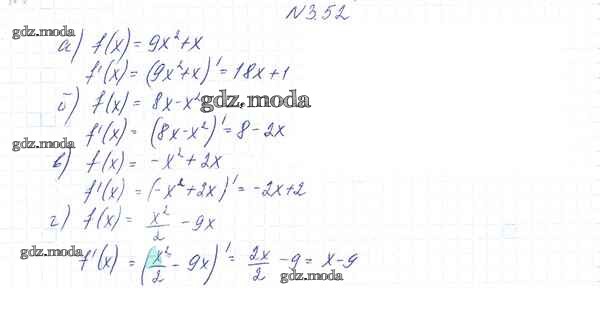 №3.52
gdz.moda
а) f(x) = 9x²+x
f'(x) = (9x²+x)' = 18x+1
б) f(x) = 8x-x²
gdz.moda
f'(x) = (8x-x²)' = 8-2x
gdz.moda
в) f(x) = -x²+2x
f'(x) = (-x²+2x)' = -2x+2
г) f(x) = x²/2 - 9x
gdz.moda
f'(x) = (x²/2 - 9x)' = 2x/2 - 9 = x-9
gdz.moda